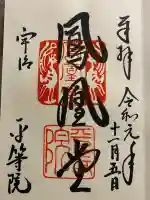 奉拝
令和元年
十一月五日
鳳凰堂
宇治
平等院